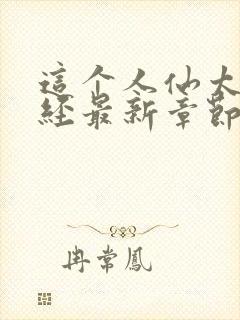 這个人仙太
經最新章節
冉常鳳